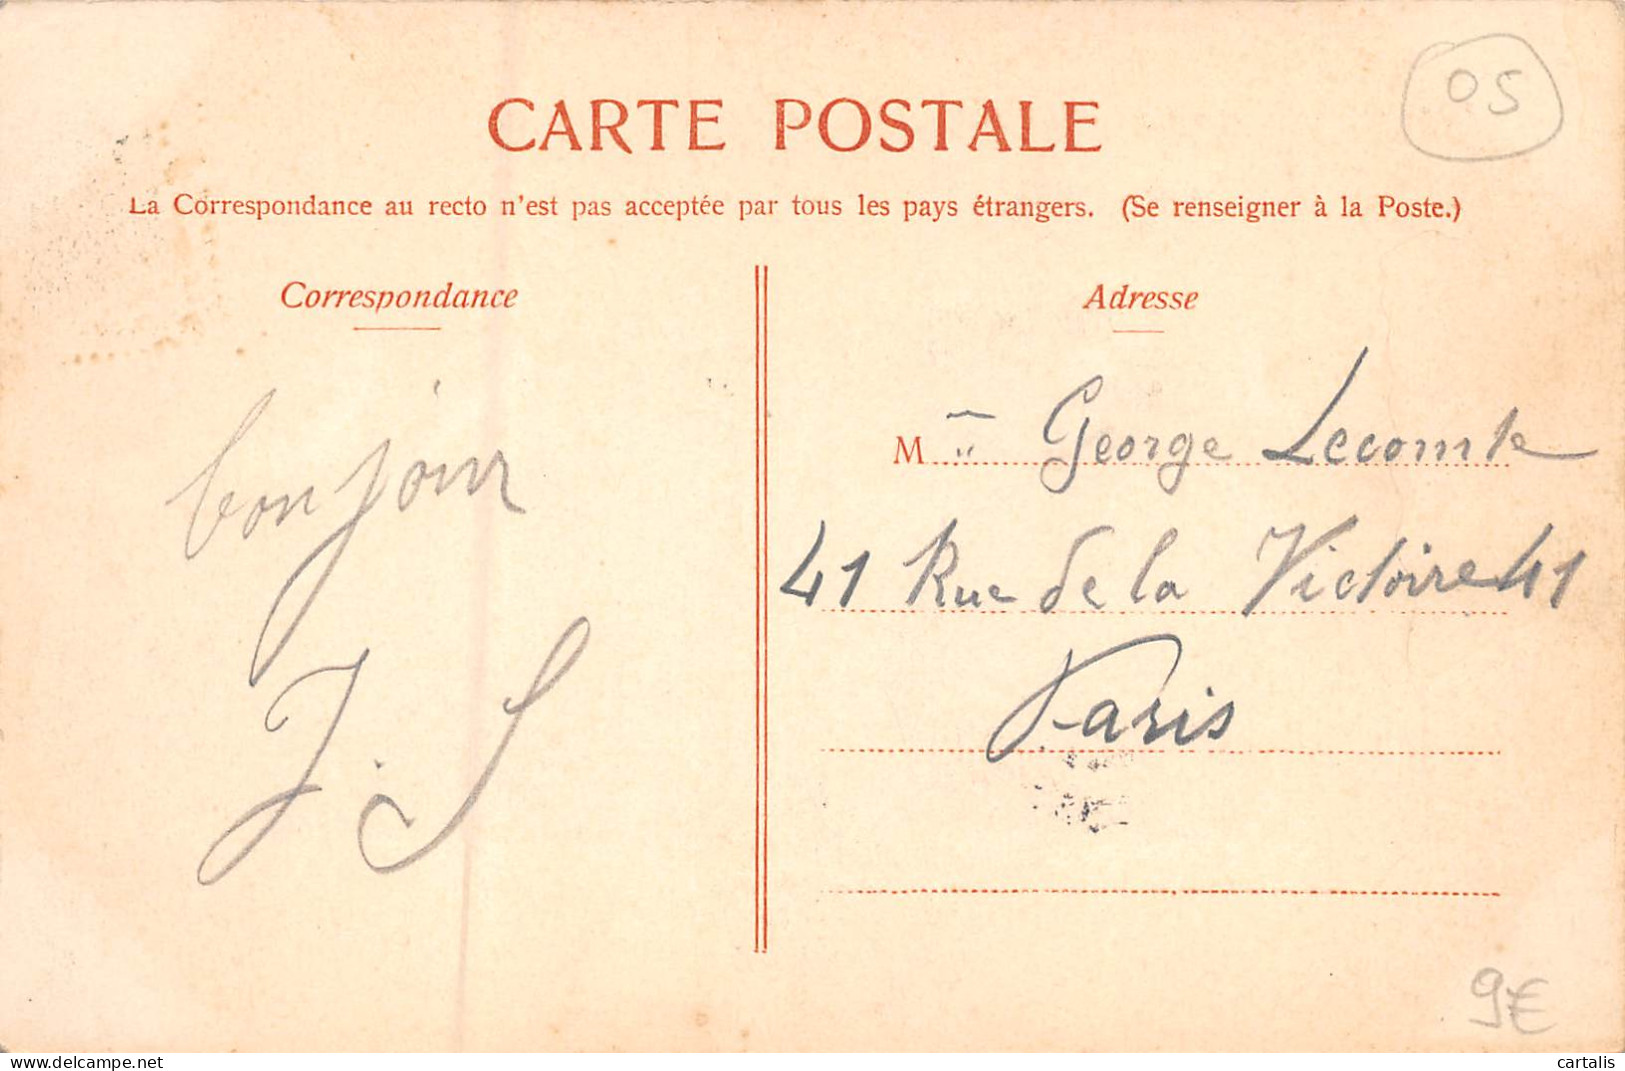 05
CARTE POSTALE
La Correspondance au recto n'est pas acceptée par tous les pays étrangers. (Se renseigner à la Poste.)
Correspondance
bonjour
J. S
Adresse
M George Lecomte
41 Rue de la Victoire 41
Paris
9€
delcampe.net
cartalis